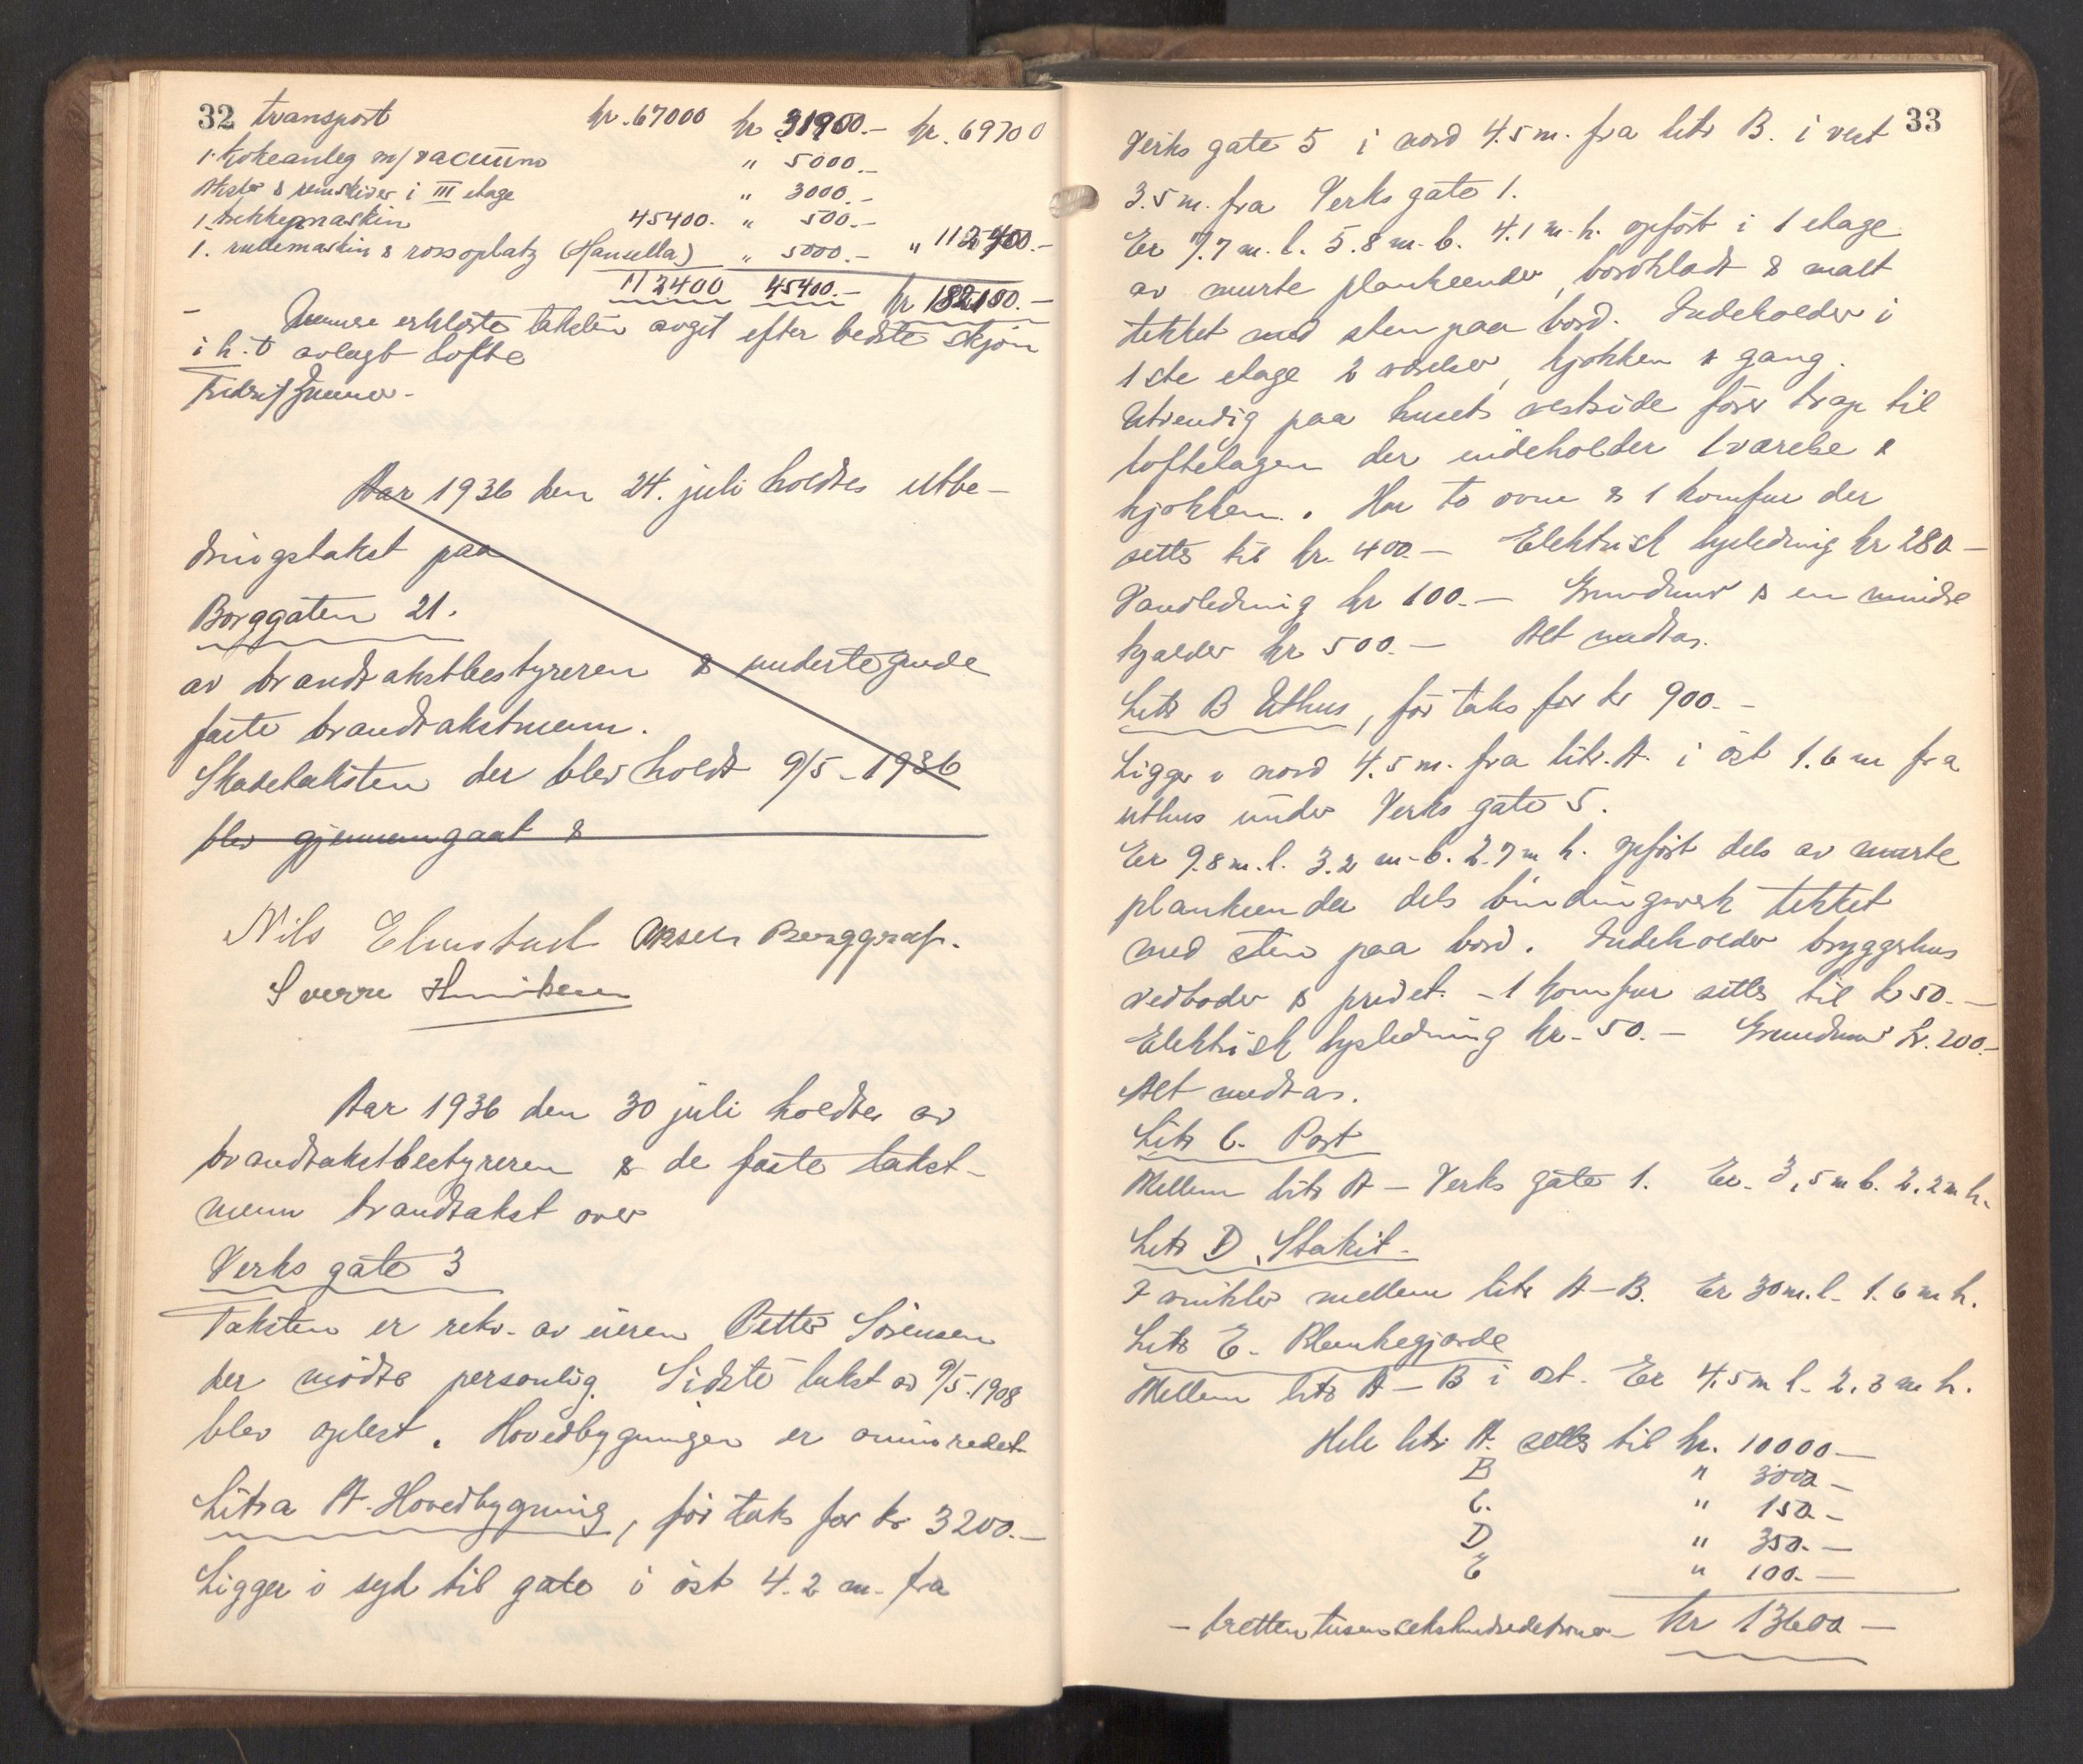 32 transport kr. 67000 kr 31900.- kr. 69700
1. kokeanleg m/vacuum " 5000.-
Aksler & remskiver i III etage " 3000.-
1. trekkemaskin 45400. " 500.-
1. rullemaskin & rossoplatz (Hansella) " 5000.- " 112400.-
112400 45400.- kr 182100.-
erklærte taksten avgit efter bedste skjøn
i h. t avlagt løfte

Aar 1936 den 24. juli holdtes utbe-
dringstakst paa
Borggaten 21.
av brandtakstbestyreren & undertegnede
faste brandtakstmenn.
Skadetaksten der blev holdt 9/5-1936
blev gjennemgaat &
Nils Elmstad Aksel Borggraf.
Sverre Henriksen
Aar 1936 den 30 juli holdtes av
brandtakstbestyreren & de faste takst-
menn brandtakst over
Verks gate 3
Taksten er rekv. av eieren Petter Sørensen
der mødte personlig. Sidste takst av 9/5-1908
blev oplest. Hovedbygningen er ominredet
Litra A. Hovedbygning, før takst for kr 3200.-
Ligger i syd til gate i øst 4.2 m. fra
33
Verks gate 5 i nord 4.5 m. fra litr B. i vest
3.5 m. fra Verks gate 1.
Er 7.7 m. l. 5.8 m. b. 4.1 m. h. opført i 1 etage
av murte plankeender, bordklædt & malt
tekket med sten paa bord. Indeholder i
1ste etage 2 værelser, kjøkken & gang.
Utvendig paa husets vestside fører trap til
loftetagen der indeholder 1 værelse &
kjøkken. Har to ovne & 1 komfur der
settes til kr. 400.- Elektrisk lysledning kr 280-
Vandledning kr 100.- Grundmur & en mindre
kjælder kr 500.- Alt medtas.
Litr B Uthus, før taks for kr 900.-
Ligger i nord 4.5 m. fra litr. A. i øst 1.6 m fra
uthus under Verks gate 5.
Er 9.8 m. l. 3.2 m. b. 2.7 m h. opført dels av murte
plankeender dels bindingsverk tekket
med sten paa bord. Indeholder bryggerhus
vedboder & privet. - 1 komfur settes til kr 50.-
Elektrisk lysledning kr. 50.- Grundmur kr. 200.-
Alt medtas.
Litr C. Port
Mellem litr A - Verks gate 1. Er. 3,5 m b. 2.2 m h.
Litr D. Stakit.
I vinkler mellem litr A-B. Er 30 m. l. 1.6 m h.
Litr E. Plankegjærde
Mellem litr A - B i øst. Er 4.5 m l. 2.3 m h.
Hele litr A. settes til kr. 10000-
B " 3000-
C. " 150.-
D " 350.-
E " 100.-
- trettentusensekshundredekroner- kr 13600-